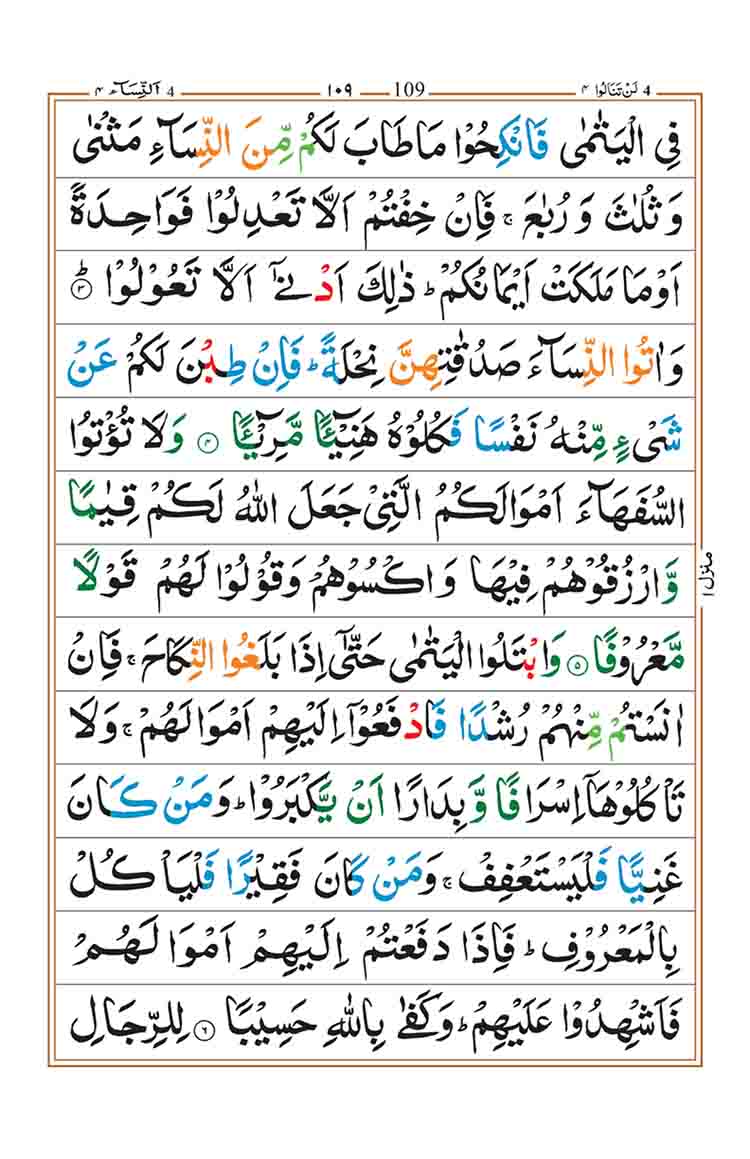 4 لَنْ تَنَالُوا ٤ 109 ١٠٩ 4 اَلنِّسَآء ٤
فِي الْيَتٰمٰى فَانْكِحُوْا مَا طَابَ لَكُمْ مِّنَ النِّسَآءِ مَثْنٰى
وَ ثُلٰثَ وَ رُبٰعَ ۚ فَاِنْ خِفْتُمْ اَلَّا تَعْدِلُوْا فَوَاحِدَةً
اَوْ مَا مَلَكَتْ اَيْمَانُكُمْ ؕ ذٰلِكَ اَدْنٰۤى اَلَّا تَعُوْلُوْا ؕ ﴿۳﴾
وَ اٰتُوا النِّسَآءَ صَدُقٰتِهِنَّ نِحْلَةً ؕ فَاِنْ طِبْنَ لَكُمْ عَنْ
شَیْءٍ مِّنْهُ نَفْسًا فَكُلُوْهُ هَنِیْٓــًٔا مَّرِیْٓــًٔا ﴿۴﴾ وَ لَا تُؤْتُوا
السُّفَهَآءَ اَمْوَالَكُمُ الَّتِیْ جَعَلَ اللّٰهُ لَكُمْ قِیٰمًا
وَّ ارْزُقُوْهُمْ فِیْهَا وَ اكْسُوْهُمْ وَ قُوْلُوْا لَهُمْ قَوْلًا
مَّعْرُوْفًا ﴿۵﴾ وَ ابْتَلُوا الْیَتٰمٰى حَتّٰۤى اِذَا بَلَغُوا النِّكَاحَ ۚ فَاِنْ
اٰنَسْتُمْ مِّنْهُمْ رُشْدًا فَادْفَعُوْۤا اِلَیْهِمْ اَمْوَالَهُمْ ۚ وَ لَا
تَاْكُلُوْهَاۤ اِسْرَافًا وَّ بِدَارًا اَنْ یَّكْبَرُوْا ؕ وَ مَنْ كَانَ
غَنِیًّا فَلْیَسْتَعْفِفْ ۚ وَ مَنْ كَانَ فَقِیْرًا فَلْیَاْكُلْ
بِالْمَعْرُوْفِ ؕ فَاِذَا دَفَعْتُمْ اِلَیْهِمْ اَمْوَالَهُمْ
فَاَشْهِدُوْا عَلَیْهِمْ ؕ وَ كَفٰى بِاللّٰهِ حَسِیْبًا ﴿۶﴾ لِلرِّجَالِ
منزل ١